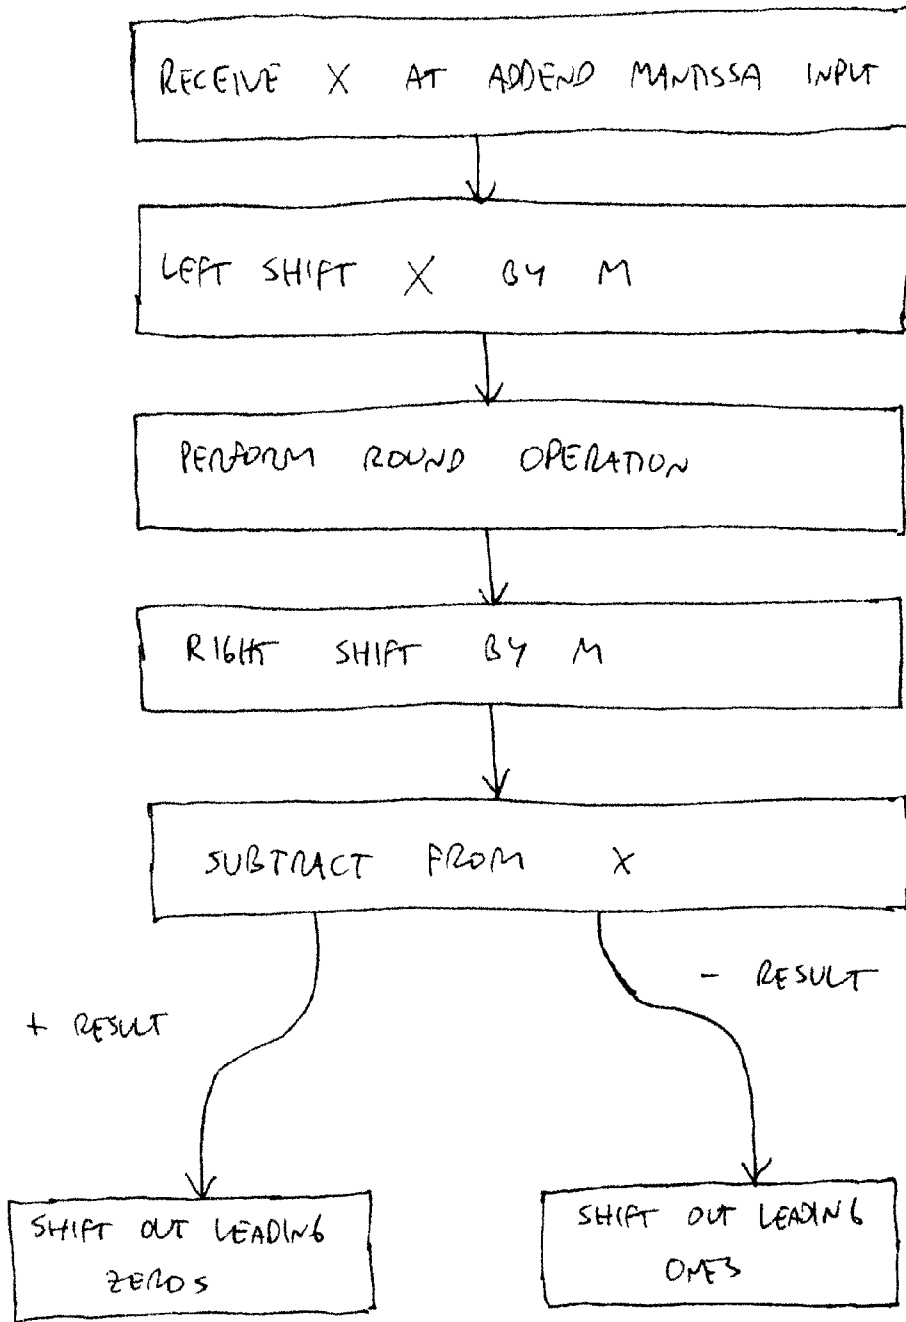 RECEIVE X AT ADDEND MANTISSA INPUT
LEFT SHIFT X BY M
PERFORM ROUND OPERATION
RIGHT SHIFT BY M
SUBTRACT FROM X
+ RESULT
- RESULT
SHIFT OUT LEADING
ZEROS
SHIFT OUT LEADING
ONES